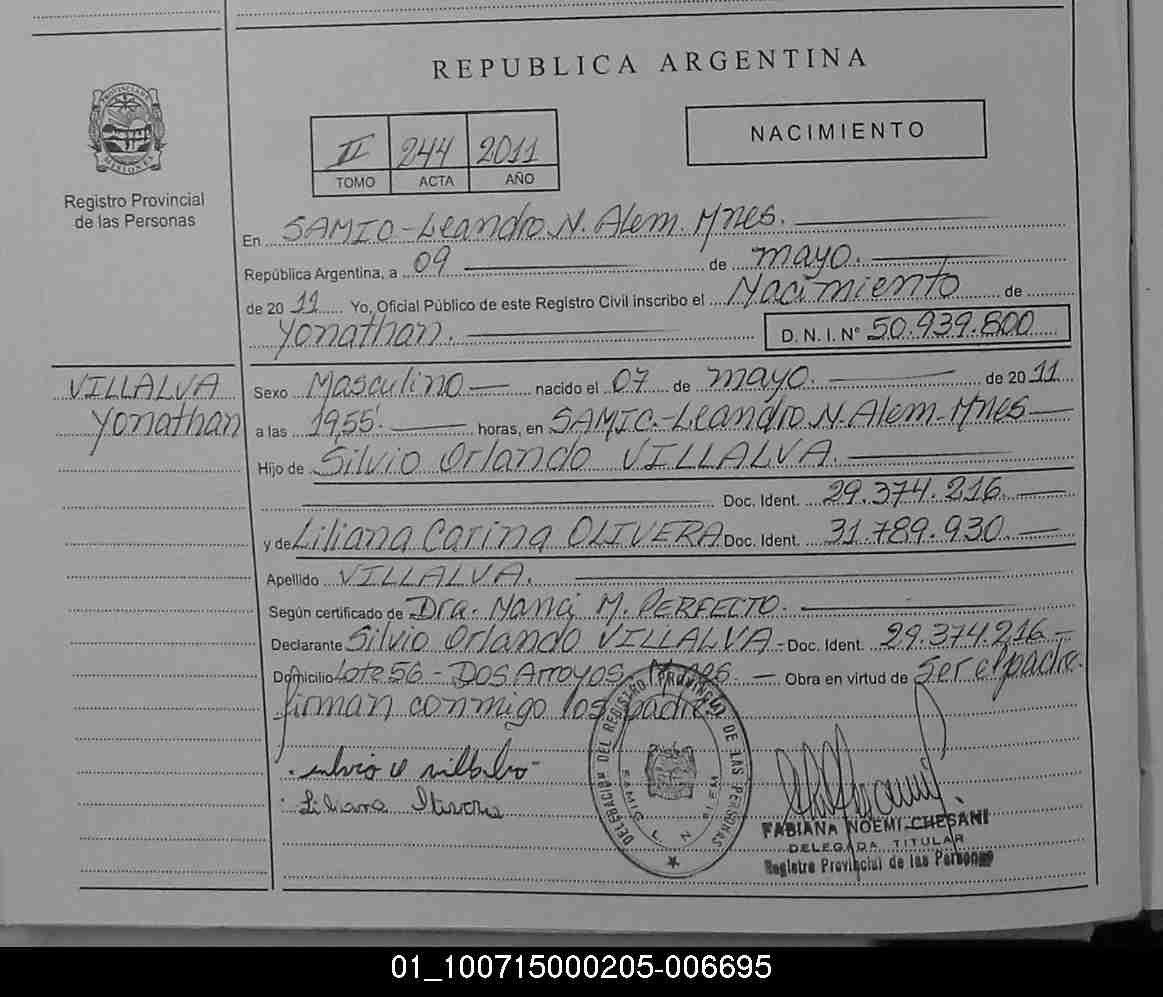 REPUBLICA ARGENTINA
PROVINCIA DE
MISIONES
Registro Provincial
de las Personas
II 244 2011
TOMO ACTA AÑO
NACIMIENTO
En SAMIC-Leandro N. Alem. Mnes.
República Argentina, a 09 de mayo.
de 2011 Yo, Oficial Público de este Registro Civil inscribo el Nacimiento de
Yonathan. D. N. I. N° 50.939.600
VILLALVA
Yonathan
Sexo Masculino nacido el 07 de mayo. de 2011
a las 1955 horas, en SAMIC.-Leandro N. Alem-Mnes
Hijo de Silvio Orlando VILLALVA.
Doc. Ident. 29.374.216
y de Liliana Carina OLIVERA Doc. Ident. 31.789.930
Apellido VILLALVA.
Según certificado de Dra. Nanci M. PERFECTO.
Declarante Silvio Orlando VILLALVA - Doc. Ident. 29.374.216
Domicilio Lote 56 - DOS Arroyos Mnes. Obra en virtud de ser el padre.
firman conmigo los padres
DELEGACION DEL REGISTRO PROVINCIAL DE LAS PERSONAS
SAMIC L. N. ALEM
FABIANA NOEMI CHESANI
DELEGADA TITULAR
Registro Provincial de las Personas
01_100715000205-006695